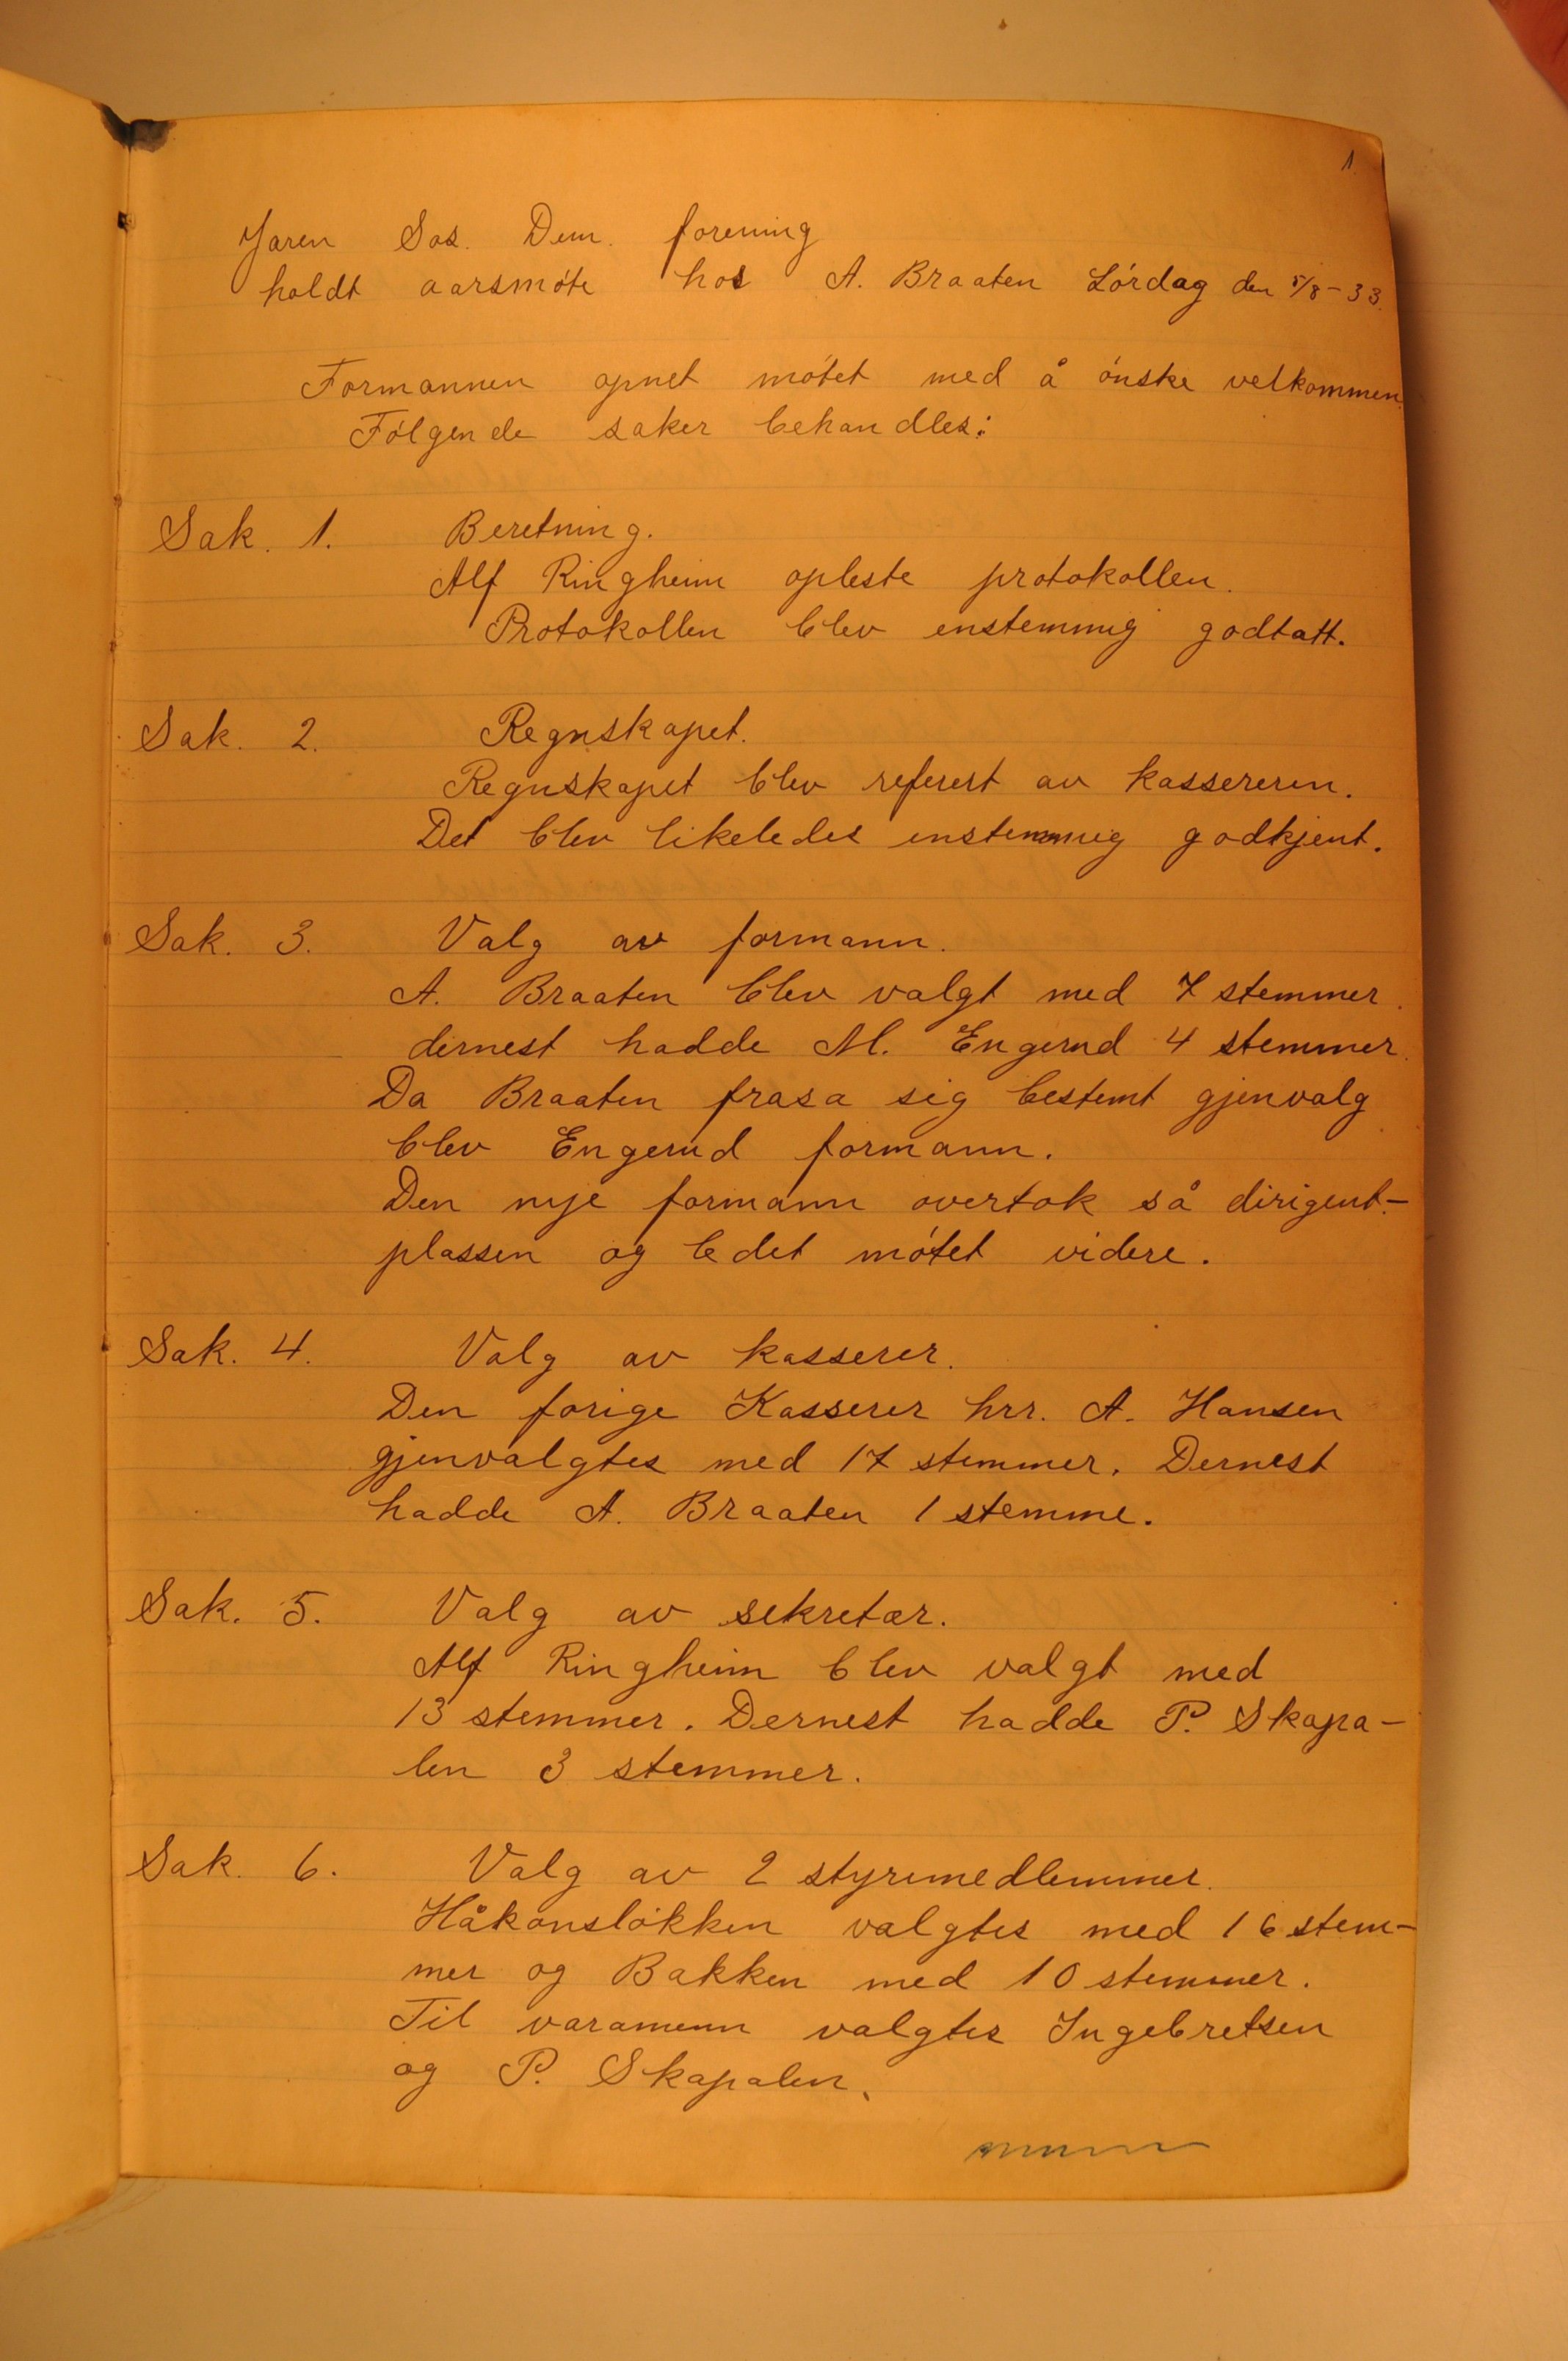 1.
Jaren Sos. Dem. forening
holdt aarsmøte hos A. Braaten Lørdag den 5/8-33.
Formannen opnet møtet med å ønske velkommen.
Følgende saker behandles:
Sak. 1. Beretning.
Alf Ringheim opleste protokollen.
Protokollen blev enstemmig godtatt.
Sak. 2. Regnskapet.
Regnskapet blev referert av kassereren.
Det blev likeledes enstemmig godkjent.
Sak. 3. Valg av formann.
A. Braaten blev valgt med 7 stemmer.
dernest hadde M. Engerud 4 stemmer.
Da Braaten frasa sig bestemt gjenvalg
blev Engerud formann.
Den nye formann overtok så dirigent-
plassen og ledet møtet videre.
Sak. 4. Valg av kasserer.
Den forige Kasserer hrr. A. Hansen
gjenvalgtes med 17 stemmer. Dernest
hadde A. Braaten 1 stemme.
Sak. 5. Valg av sekretær.
Alf Ringheim blev valgt med
13 stemmer. Dernest hadde P. Skapa-
len 3 stemmer.
Sak. 6. Valg av 2 styremedlemmer.
Håkonsløkken valgtes med 16 stem-
mer og Bakken med 10 stemmer.
Til varamenn valgtes Ingebretsen
og P. Skapalen.